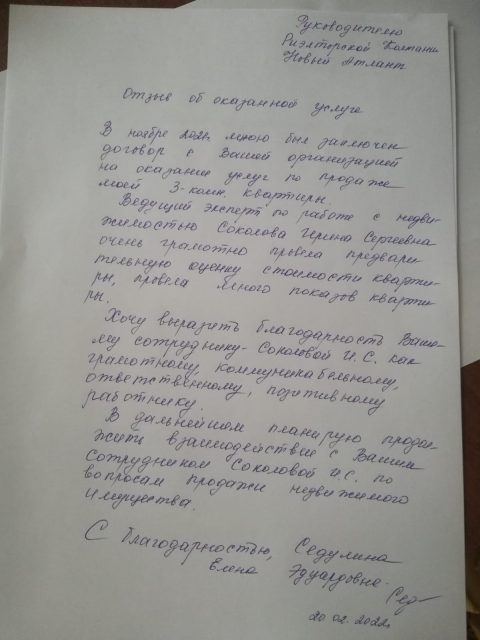 Руководителю
Риэлторской Компании
Новый Атлант
Отзыв об оказанной услуге
В ноябре 2021г. мною был заключен
договор с Вашей организацией
на оказание услуг по продаже
моей 3-комн. квартиры.
Ведущий эксперт по работе с недви-
жимостью Соколова Ирина Сергеевна
очень грамотно провела предвари-
тельную оценку стоимости кварти-
ры, провела много показов кварти-
ры.
Хочу выразить благодарность Ваше-
му сотруднику - Соколовой И.С. как
грамотному, коммуникабельному,
ответственному, позитивному
работнику.
В дальнейшем планирую продол-
жить взаимодействие с Вашим
сотрудником Соколовой И.С. по
вопросам продажи недвижимого
имущества.
С благодарностью, Седулина
Елена Эдуардовна.
Сед
20.02.2022г